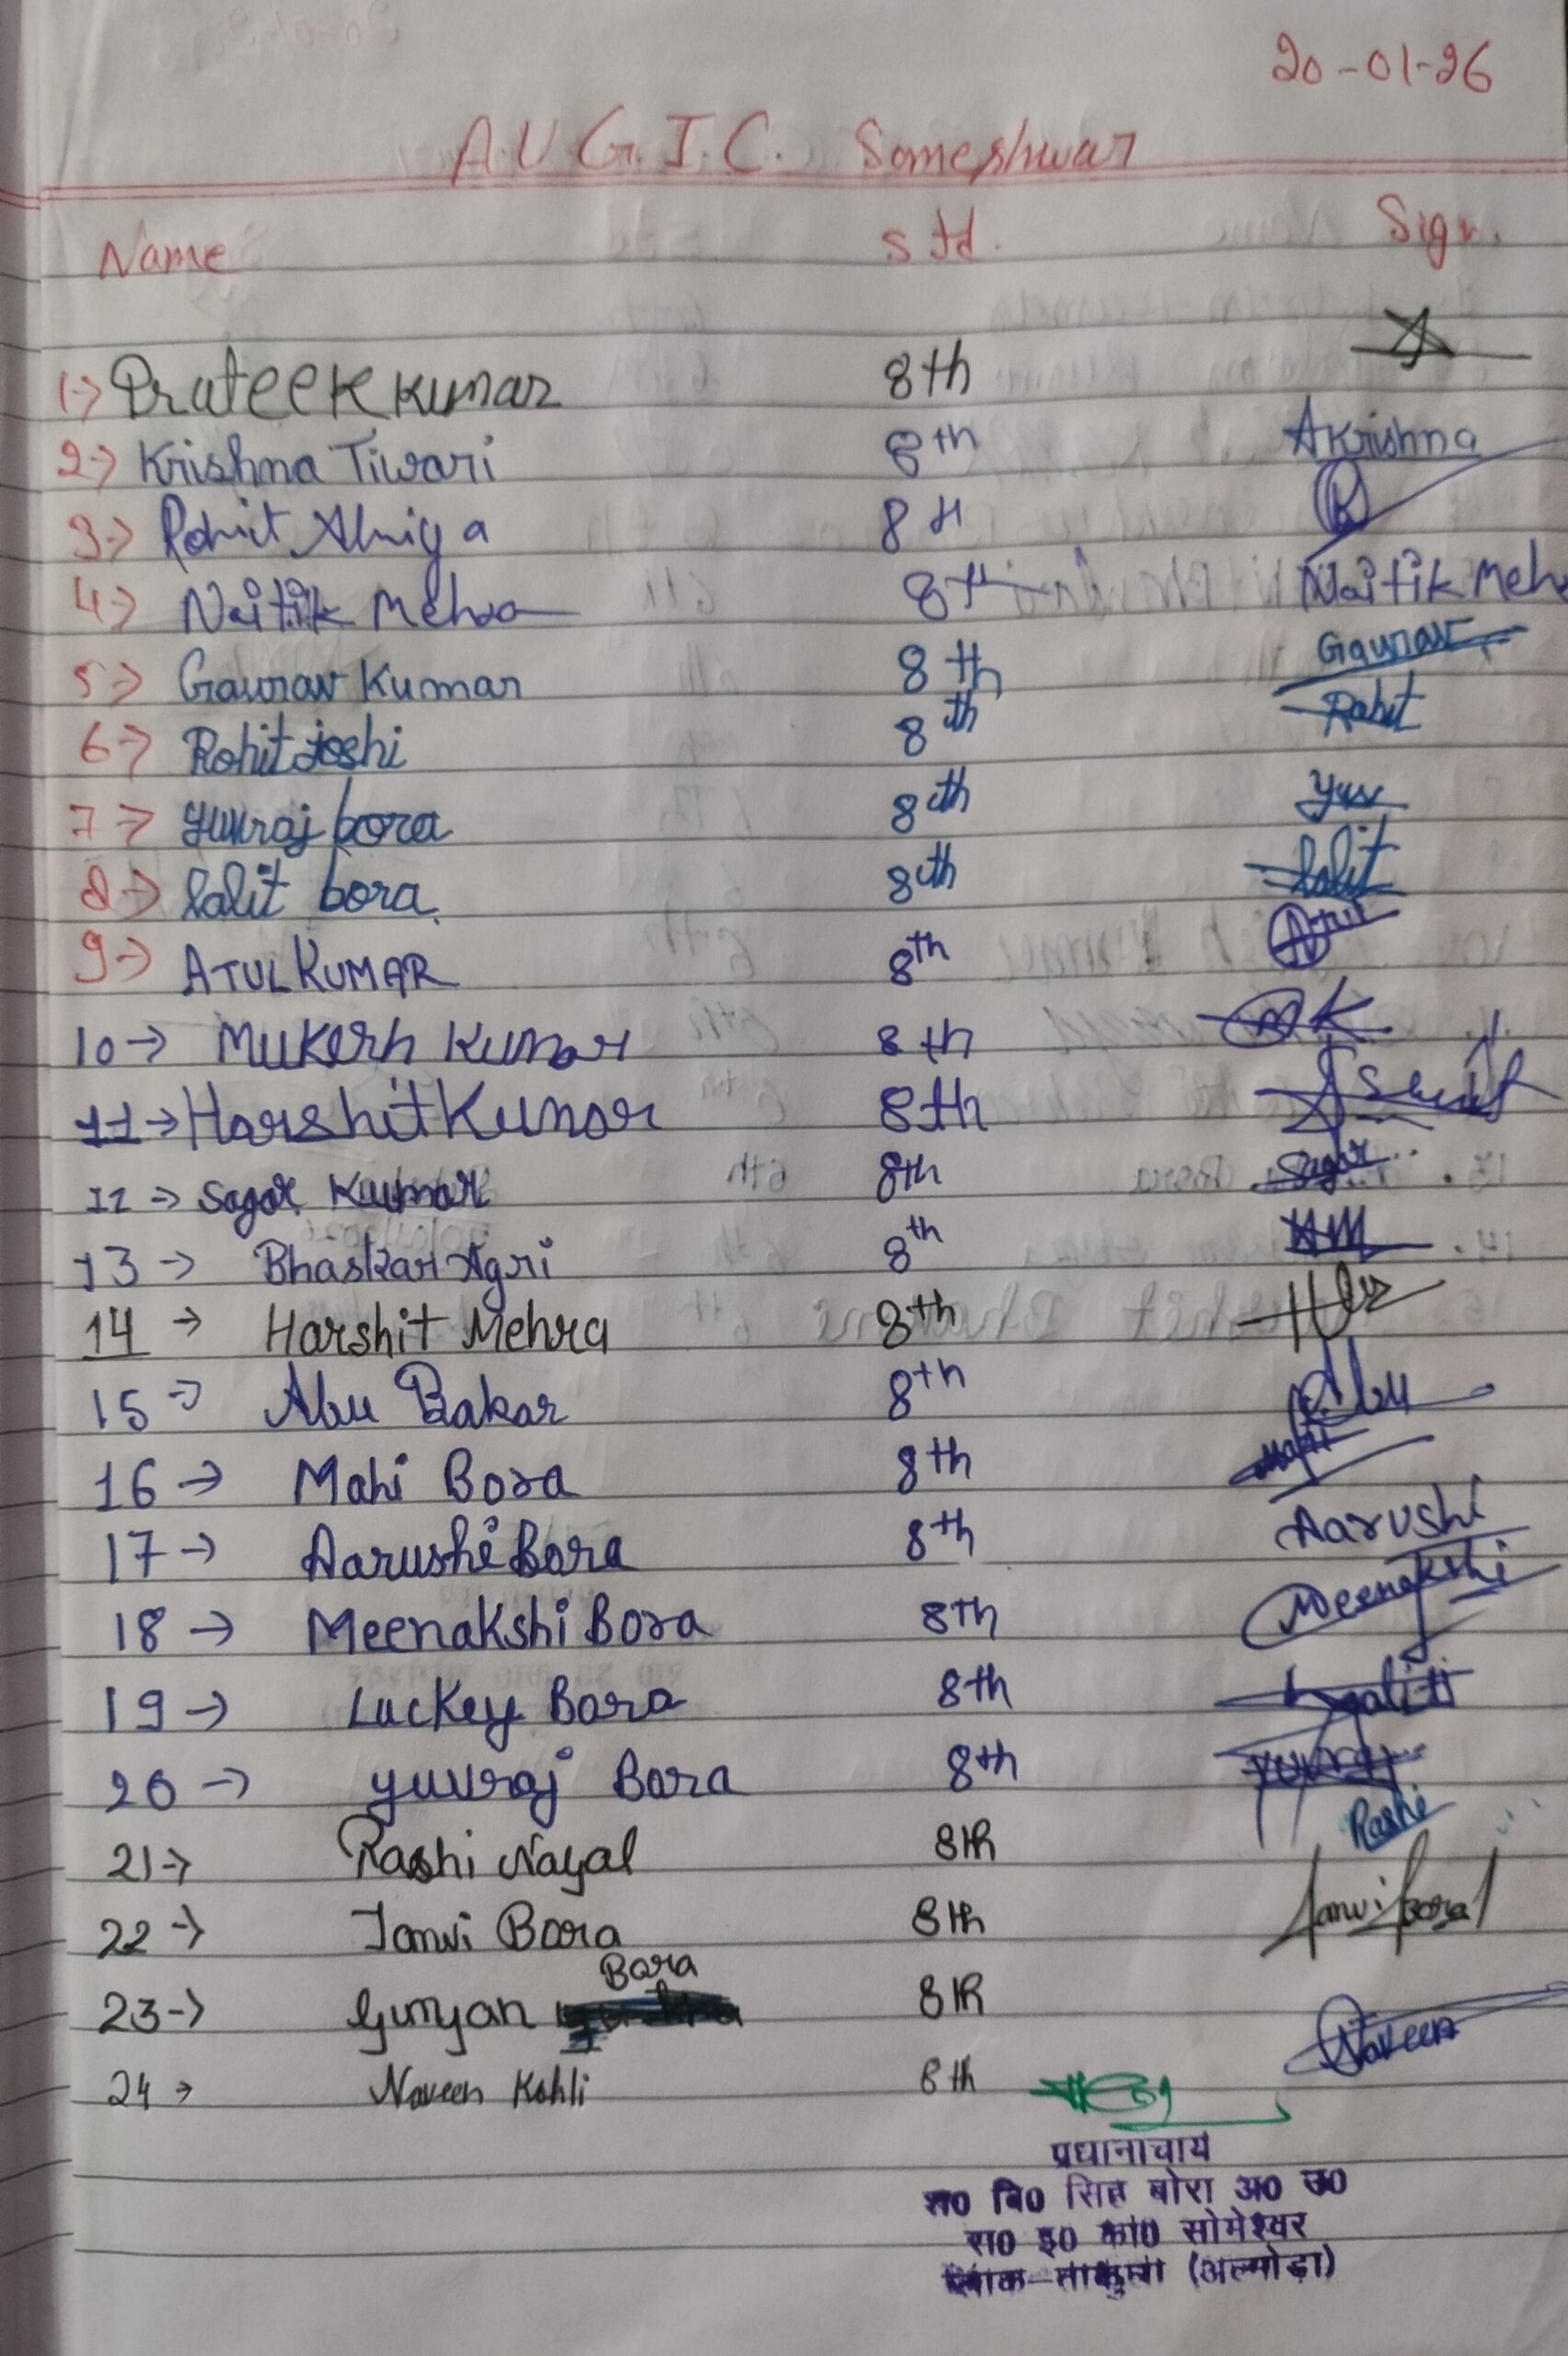 20-01-26
A.U.G.I.C. Someshwar
Name Std. Sign.
1-> Prateek Kumar 8th
2-> Krishna Tiwari 8th Akrishna
3-> Rohit Ahiya 8th R
4-> Naitik Mehra 8th Naitik Meh
5-> Gaurav Kumar 8th Gaurav
6-> Rohit Joshi 8th Rohit
7-> Yuvraj bora 8th Yuv
8-> Lalit bora. 8th Lalit
9-> ATUL KUMAR 8th Atul
10-> Mukesh Kumar 8th MK
11-> Harshit Kumar 8th
12-> Sagar Kumar 8th Sagar
13-> Bhaskar Agri 8th
14-> Harshit Mehra 8th
15-> Abu Bakar 8th Abu
16-> Mahi Bora 8th Mahi
17-> Aarushi Bora 8th Aarushi
18-> Meenakshi Bora 8th Meenakshi
19-> Luckey Bora 8th
20-> Yuvraj Bora 8th Yuvraj
21-> Rashi Nayal 8th Rashi
22-> Janvi Bora 8th Janvi bora
23-> Gunjan Bora 8th
24-> Naveen Kohli 8th Naveen
प्रधानाचार्य
श० वि० सिंह बोरा अ० उ०
रा० इ० का० सोमेश्वर
ब्लाक-ताकुला (अल्मोड़ा)